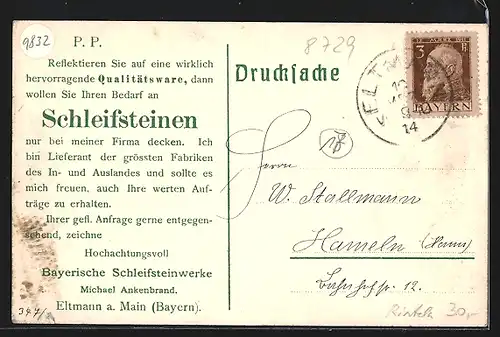 9832
P. P.
8729
Reflektieren Sie auf eine wirklich
hervorragende Qualitätsware, dann
wollen Sie Ihren Bedarf an
Schleifsteinen
nur bei meiner Firma decken. Ich
bin Lieferant der grössten Fabriken
des In- und Auslandes und sollte es
mich freuen, auch Ihre werten Auf-
träge zu erhalten.
Ihrer gefl. Anfrage gerne entgegen-
sehend, zeichne
Hochachtungsvoll
Bayerische Schleifsteinwerke
Michael Ankenbrand.
Eltmann a. Main (Bayern).
Drucksache
3
BAYERN
ELTM
14
Herrn
W. Stallmann
Hameln (Hann)
Bahnhofstr. 12.
30,-